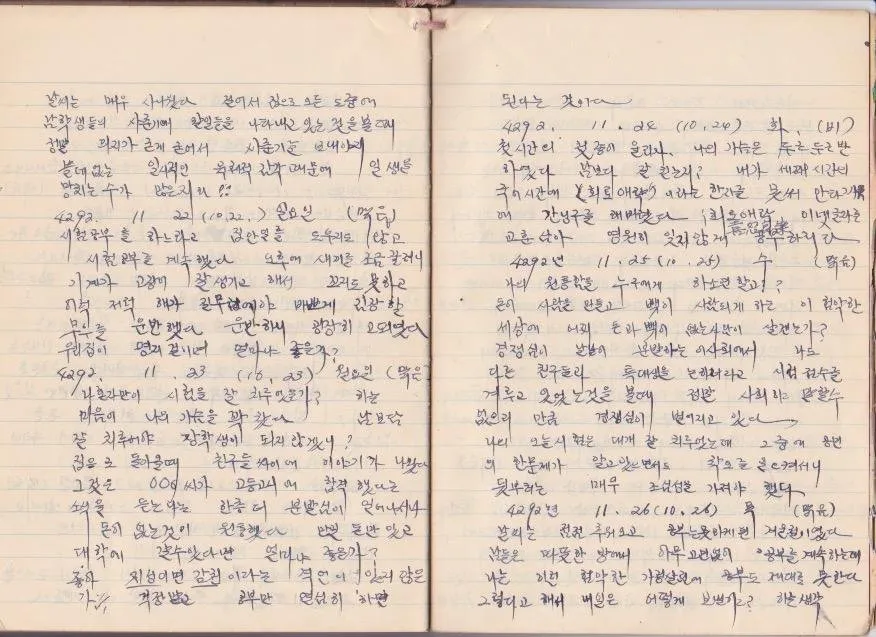 날씨는 매우 사나웠다 걸어서 집으로 오든 도중에
남학생들의 사춘기에 한일들을 나타내고 있는 것을 볼 때
정말 의지가 굳게 살어서 사춘기를 보내야지
볼데없는 일시적인 육체적 감각때문에 일생을
망치는 수가 많은지라 !!
4292. 11 22 (10.22.) 일요일 (맑음)
시험공부를 하느라고 집안일를 도우지도 않고
시험공부를 계속했다 오후에 새끼를 조금 꼴려니
기계가 고장이 잘생기고 해서 꼬지도 못하고
이럭저럭 해가 질무렵에야 바쁘게 김장할
무우를 운반했다 운반하니 굉장히 고되였다
우리집이 멀지 않으면 얼마나 좋은가?
4292. 11. 23 (10.23) 월요일 (맑음)
나혼자만이 시험을 잘 치루었는가? 하는
마음이 나의 가슴을 꽉 찼다 남보담
잘 치루어야 장학생이 되지않겠나?
집으로 돌아올때 친구들 싸이에 이야기가 나왔다
그것은 006씨가 고등고시에 합격했다는
소식을 듣는나는 한층 더 분발심이 일어나서나
돈이 없는것이 원통했다 만일 돈만 있고
대학에 갈수있다면 얼마나 좋을가?
좋아 지성이면 감천이라는 격언이 있지 않은
가!! 걱정말고 공부만 열심히 하면
된다는 것이다
4292. 11. 24 (10.24) 화. (비)
첫시간의 첫종이 울리자. 나의 가슴은 두근두근 반
하였다 남보다 잘 친는지? 내가 세째시간의
국어시간에 (희로애락)이라는 한자를 못써 안타가움
에 간닝구를 해버렸다 (희로애락) 이넷글자를
喜怒哀樂
교훈삼아 영원히 잊지않게 공부하리다
4292년 11. 25 (10.25) 수 (맑음)
나의 원통함을 누구에게 하소연 할고!?
돈이 사람을 만들고 빽이 사람되게 하는 이 험악한
세상에 어찌 돈과 빽이 없는사람이 살런가?
경쟁심이 날날이 분발하는 이사회에서 나도
다른 친구들과 특대생을 는히려라고 시험 점수를
겨루고 있었는것을 볼때 정말 사회라고 말할수
없으리 만큼 경쟁심이 벌어지고 있다
나의 오늘시험은 대개 잘 치루었는데 그 중에 8번
의 한문제가 알고있으면서도 착오를 일으켜서니
뒷부터는 매우 조심성을 가져야 했다
4292년 11. 26 (10.26) 목 (맑음)
날씨는 점점 추워오고 공부는못하게된 겨울철이였다
남들은 따뜻한 방에서 아무 고민없이 공부를 계속하는데
나는 이런 험악한 가정살림에 공부도 제대로 못한다
그렇다고 해서 매일은 어떻게 보낼가? 하는생각